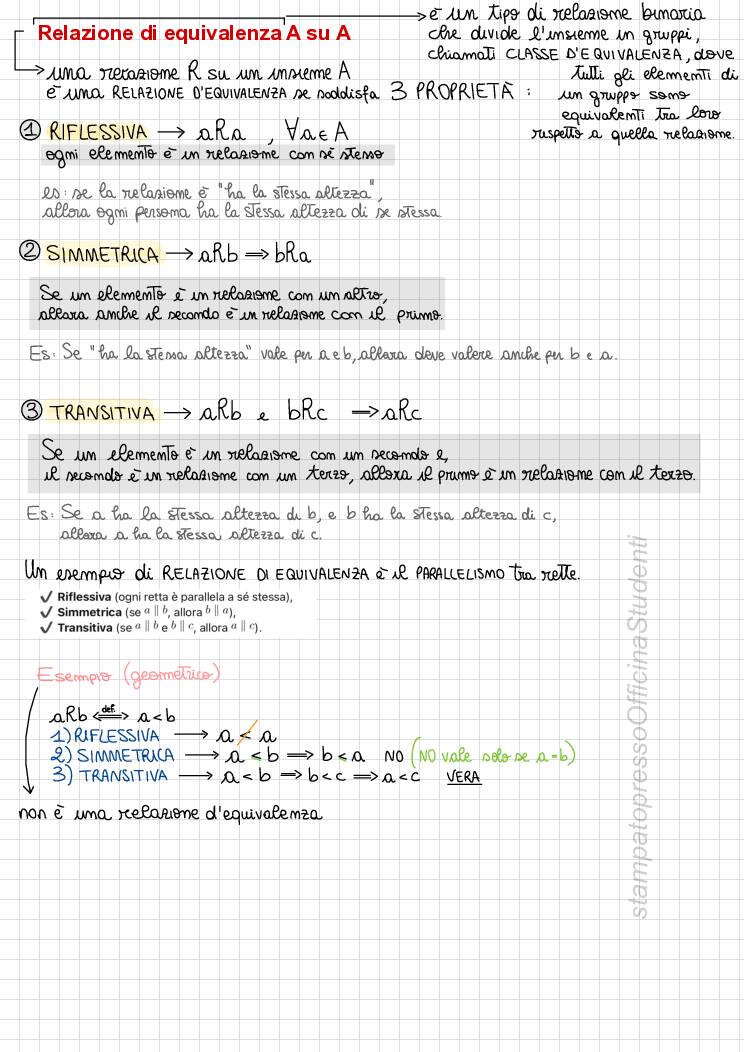 Relazione di equivalenza A su A
è un tipo di relazione binaria
che divide l'insieme in gruppi,
chiamati CLASSE D'EQUIVALENZA, dove
tutti gli elementi di
un gruppo sono
equivalenti tra loro
rispetto a quella relazione.
una relazione R su un insieme A
è una RELAZIONE D'EQUIVALENZA se soddisfa 3 PROPRIETÀ :
① RIFLESSIVA → aRa , ∀a∈A
ogni elemento è in relazione con sé stesso
es: se la relazione è "ha la stessa altezza",
allora ogni persona ha la stessa altezza di se stessa
② SIMMETRICA → aRb ⟹ bRa
Se un elemento è in relazione con un altro,
allora anche il secondo è in relazione con il primo.
Es: Se "ha la stessa altezza" vale per a e b, allora deve valere anche per b e a.
③ TRANSITIVA → aRb e bRc ⟹ aRc
Se un elemento è in relazione con un secondo e,
il secondo è in relazione con un terzo, allora il primo è in relazione con il terzo.
Es: Se a ha la stessa altezza di b, e b ha la stessa altezza di c,
allora a ha la stessa altezza di c.
Un esempio di RELAZIONE DI EQUIVALENZA è il PARALLELISMO tra rette.
✓ Riflessiva (ogni retta è parallela a sé stessa),
✓ Simmetrica (se a ∥ b, allora b ∥ a),
✓ Transitiva (se a ∥ b e b ∥ c, allora a ∥ c).
Esempio (geometrico)
aRb ⟺ def. a < b
1) RIFLESSIVA → a < a
2) SIMMETRICA → a < b ⟹ b < a NO (NO vale solo se a = b)
3) TRANSITIVA → a < b ⟹ b < c ⟹ a < c VERA
non è una relazione d'equivalenza
stampatopressoOfficinaStudenti